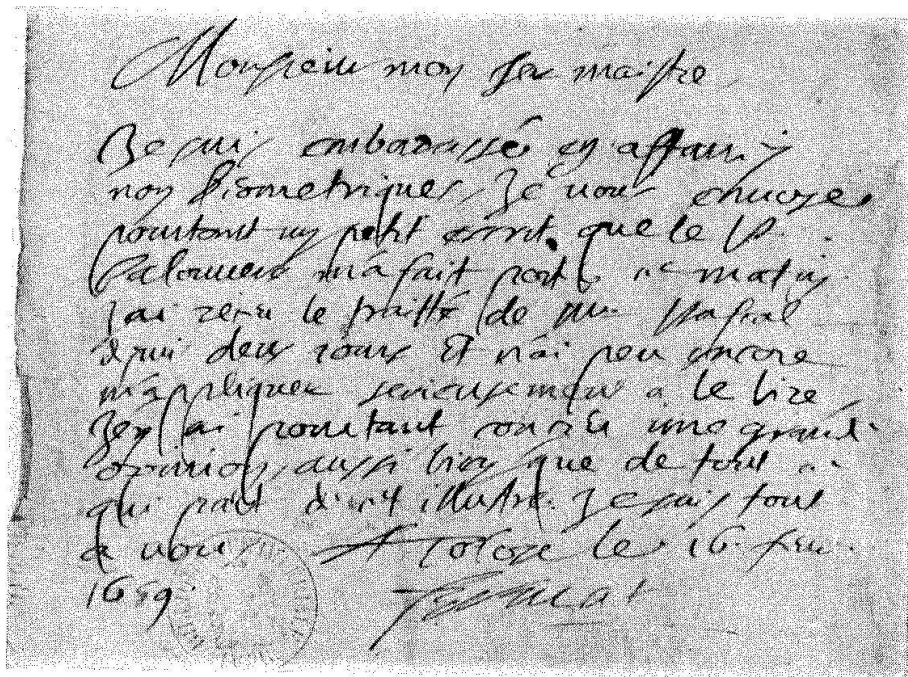 Monsieur mon cher maistre
Je suis embarassé en affaires
non Geometriques, Je vous envoye
pourtant un petit escrit que le P.
m'a fait porter ce matin
J'ai receu le traitté de Mr Pascal
depuis deux jours et n'ai peu encore
m'appliquer serieusement a le lire
J'en ai pourtant conceu une grande
opinion aussi bien que de tout ce
qui part illustre. Je suis tout
a vous A Tolose le 16. feu.
1659.
Fermat